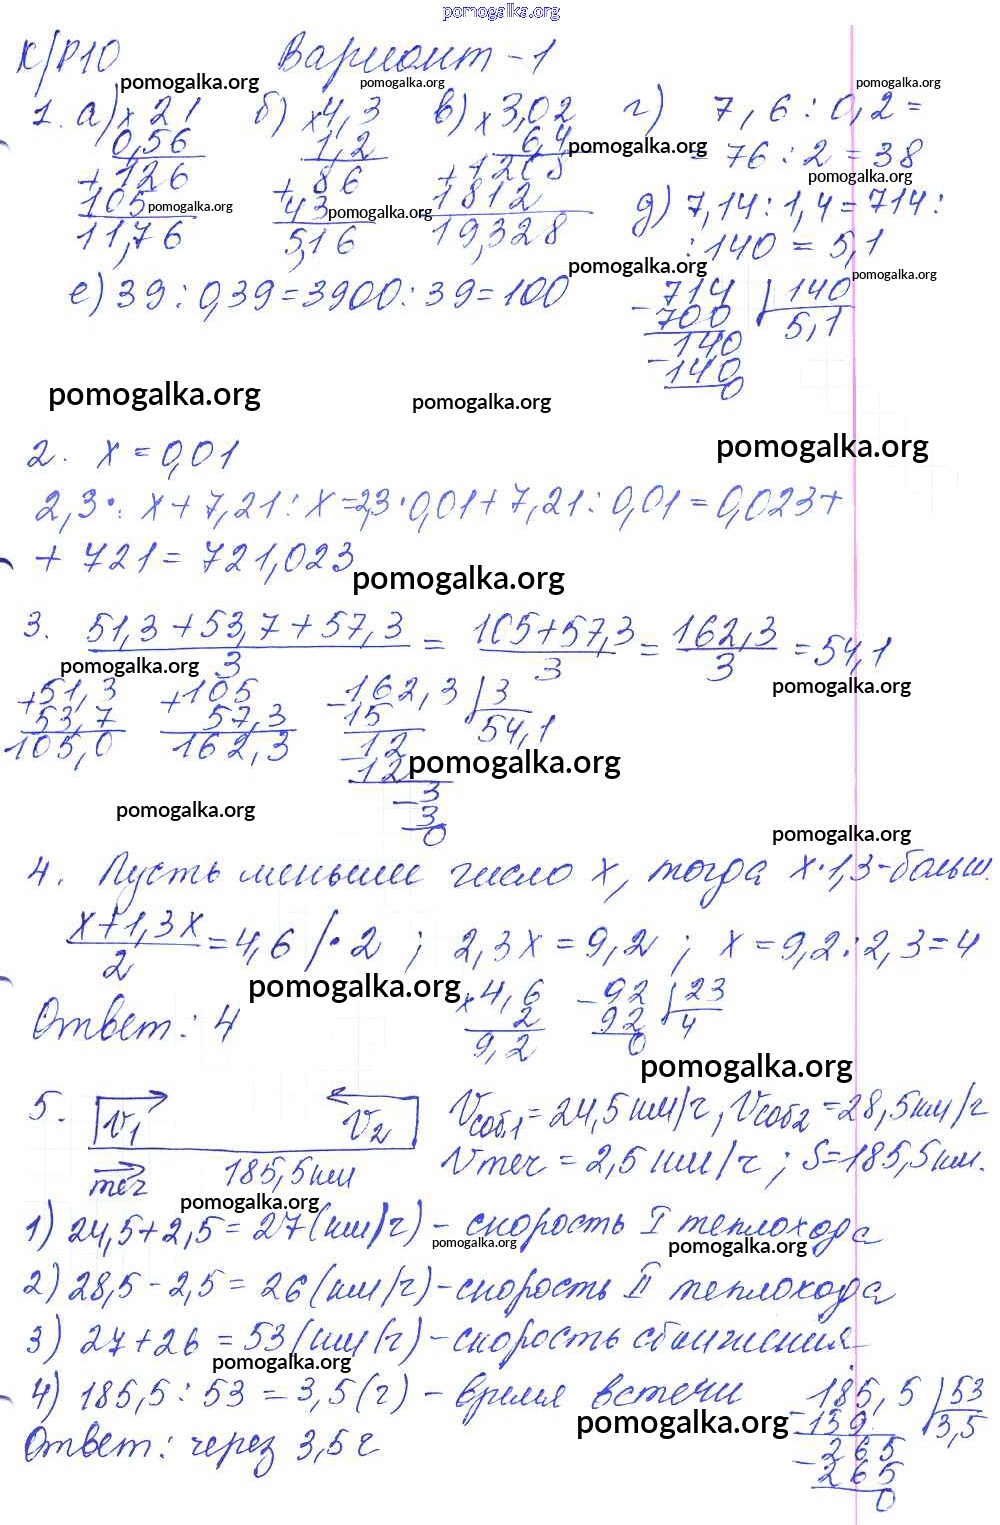 pomogalka.org
К/Р10 Вариант - 1
pomogalka.org pomogalka.org pomogalka.org
1. а) × 21 б) × 4,3 в) × 3,02 г) 7,6 : 0,2 =
0,56 1,2 6,4 pomogalka.org = 76 : 2 = 38
+ 126 + 86 + 1208 pomogalka.org
105 pomogalka.org 43 pomogalka.org 1812 д) 7,14 : 1,4 = 714 :
11,76 5,16 19,328 : 140 = 5,1
pomogalka.org pomogalka.org
е) 39 : 0,39 = 3900 : 39 = 100 - 714 | 140
700 5,1
140
- 140
0
pomogalka.org pomogalka.org
pomogalka.org
2. x = 0,01
2,3 · x + 7,21 : x = 2,3 · 0,01 + 7,21 : 0,01 = 0,023 +
+ 721 = 721,023
pomogalka.org
3. 51,3 + 53,7 + 57,3 / 3 = 105 + 57,3 / 3 = 162,3 / 3 = 54,1
pomogalka.org pomogalka.org
+ 51,3 + 105 - 162,3 | 3
53,7 57,3 15 54,1
105,0 162,3 - 12
12 pomogalka.org
- 3
3
0
pomogalka.org pomogalka.org
4. Пусть меньшее число x, тогда x · 1,3 - больш.
x + 1,3x / 2 = 4,6 / · 2 ; 2,3x = 9,2 ; x = 9,2 : 2,3 = 4
pomogalka.org × 4,6 - 92 | 23
Ответ: 4 2 92 4
9,2 0
pomogalka.org
5. V1 V2 Vсоб1 = 24,5 км/ч, Vсоб2 = 28,5 км/ч
теч 185,5 км Vтеч = 2,5 км/ч ; S = 185,5 км.
pomogalka.org
1) 24,5 + 2,5 = 27 (км/ч) - скорость I теплохода
pomogalka.org pomogalka.org
2) 28,5 - 2,5 = 26 (км/ч) - скорость II теплохода
3) 27 + 26 = 53 (км/ч) - скорость сближения
pomogalka.org
4) 185,5 : 53 = 3,5 (ч) - время встечи - 185,5 | 53
pomogalka.org 159 3,5
Ответ: через 3,5 ч - 265
265
0